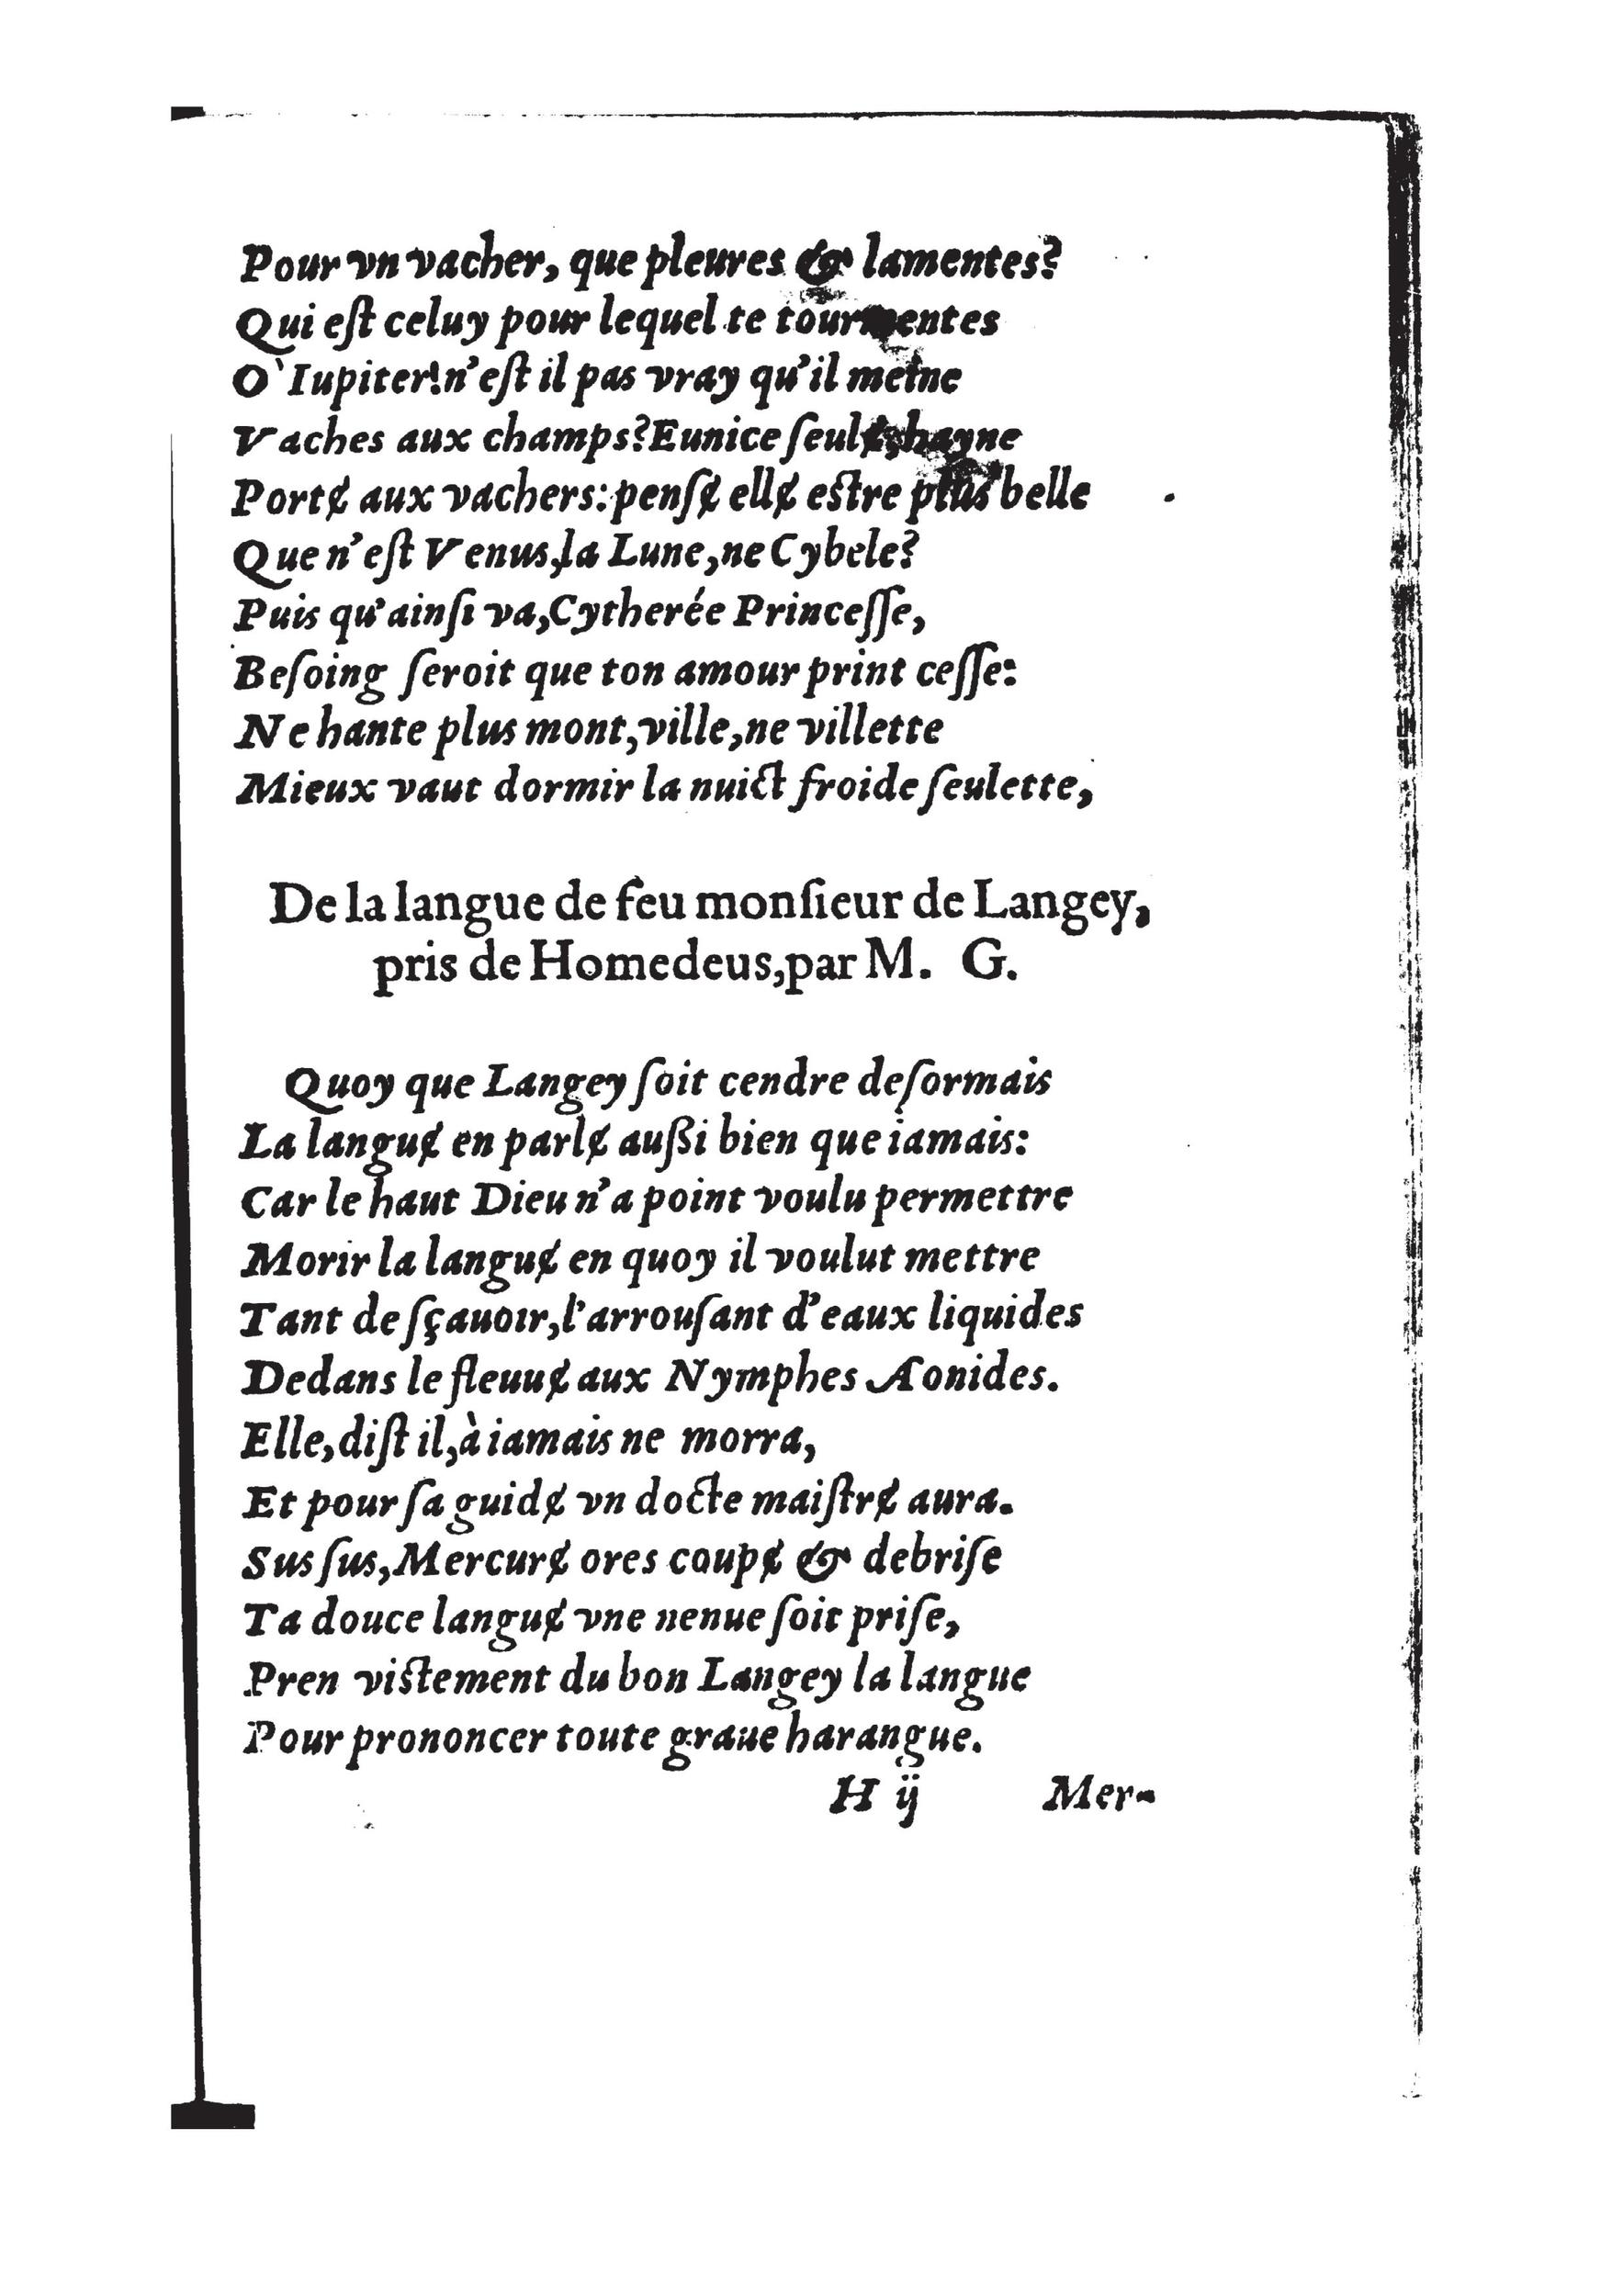 Pour vn vacher, que pleures & lamentes?
Qui eſt celuy pour lequel te tourmentes
O`Iupiter!n'eſt il pas vray qu'il meine
Vaches aux champs?Eunice ſeulɇ,hayne
Portɇ aux vachers:penſɇ ellɇ eſtre plus belle
Que n'eſt Venus,la Lune,ne Cybele?
Puis qu'ainſi va,Cytherée Princeſſe,
Beſoing ſeroit que ton amour print ceſſe:
Ne hante plus mont,ville,ne villette
Mieux vaut dormir la nuict froide ſeulette,
De la langue de feu monſieur de Langey,
pris de Homedeus,par M. G.
Quoy que Langey ſoit cendre deſormais
La languɇ en parlɇ außi bien que iamais:
Car le haut Dieu n'a point voulu permettre
Morir la languɇ en quoy il voulut mettre
Tant de ſçauoır,l'arrouſant d'eaux liquides
Dedans le fleuuɇ aux Nymphes Aonides.
Elle,diſt il,à iamais ne morra,
Et pour ſa guidɇ vn docte maiſtrɇ aura.
Sus ſus,Mercurɇ ores coupɇ & debriſe
Ta douce languɇ vne nenue ſoit priſe,
Pren viſtement du bon Langey la langue
Pour prononcer toute graue harangue.
H ij Mer-